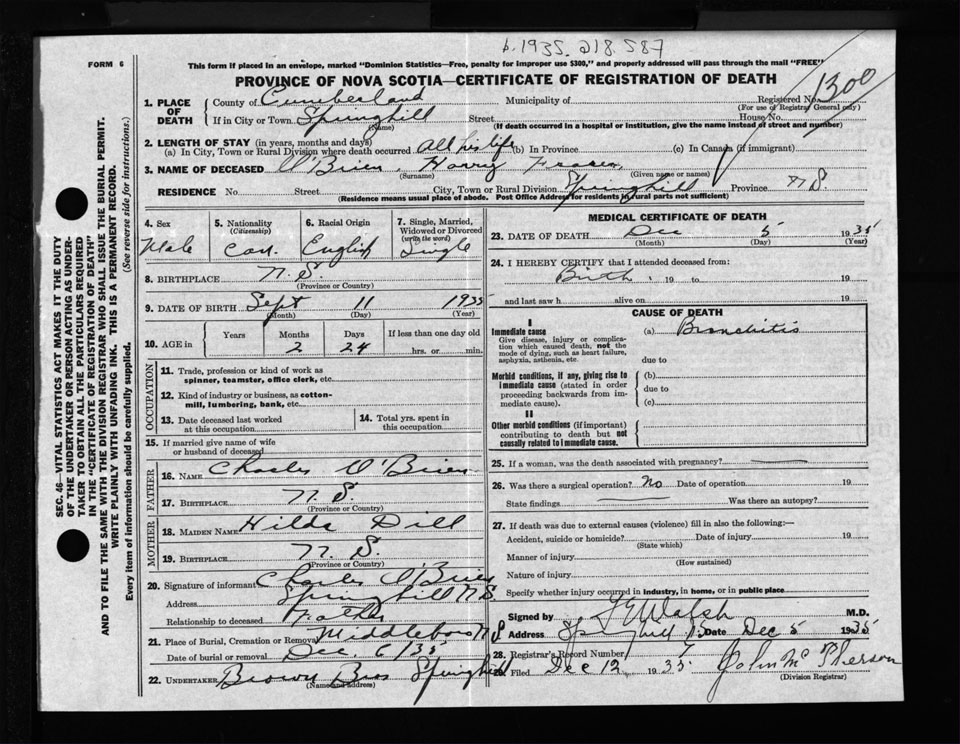 b. 1935. 218.587
FORM 6
This form if placed in an envelope, marked "Dominion Statistics—Free, penalty for improper use $300," and properly addressed will pass through the mail "FREE"
PROVINCE OF NOVA SCOTIA—CERTIFICATE OF REGISTRATION OF DEATH
1300
1. PLACE OF DEATH
County of Cumberland Municipality of Registered No.
(For use of Registrar General only)
If in City or Town Springhill Street House No.
(Name) (If death occurred in a hospital or institution, give the name instead of street and number)
2. LENGTH OF STAY (in years, months and days)
(a) In City, Town or Rural Division where death occurred all his life (b) In Province (c) In Canada (if immigrant)
3. NAME OF DECEASED O'Brien, Harry Fraser
(Surname) (Given name or names)
RESIDENCE No Street City, Town or Rural Division Springhill Province N S.
(Residence means usual place of abode. Post Office Address for residents in rural parts not sufficient)
4. Sex Male
5. Nationality (Citizenship) Can.
6. Racial Origin English
7. Single, Married, Widowed or Divorced (write the word) Single
8. BIRTHPLACE N. S.
(Province or Country)
9. DATE OF BIRTH Sept 11 1935
(Month) (Day) (Year)
10. AGE in Years Months 2 Days 24 If less than one day old hrs. or min.
OCCUPATION
11. Trade, profession or kind of work as spinner, teamster, office clerk, etc.
12. Kind of industry or business, as cotton-mill, lumbering, bank, etc.
13. Date deceased last worked at this occupation
14. Total yrs. spent in this occupation
15. If married give name of wife or husband of deceased
FATHER
16. NAME Charles O'Brien
17. BIRTHPLACE N. S.
(Province or Country)
MOTHER
18. MAIDEN NAME Hilda Dill
19. BIRTHPLACE N. S.
(Province or Country)
20. Signature of informant Charles O'Brien
Address Springhill N.S.
Relationship to deceased
21. Place of Burial, Cremation or Removal Middleboro N S
Date of burial or removal Dec. 6/35
22. UNDERTAKER Brown Bros Springhill
(Name and address)
MEDICAL CERTIFICATE OF DEATH
23. DATE OF DEATH Dec 5 1935
(Month) (Day) (Year)
24. I HEREBY CERTIFY that I attended deceased from:
Birth 19 to 19
and last saw h alive on 19
CAUSE OF DEATH
I
Immediate cause
Give disease, injury or complication which caused death, not the mode of dying, such as heart failure, asphyxia, asthenia, etc.
(a) Bronchitis
due to
Morbid conditions, if any, giving rise to immediate cause (stated in order proceeding backwards from immediate cause).
(b)
due to
(c)
II
Other morbid conditions (if important) contributing to death but not causally related to immediate cause.
25. If a woman, was the death associated with pregnancy?
26. Was there a surgical operation? No Date of operation 19
State findings Was there an autopsy?
27. If death was due to external causes (violence) fill in also the following:—
Accident, suicide or homicide? Date of injury 19
(State which)
Manner of injury
(How sustained)
Nature of injury
Specify whether injury occurred in industry, in home, or in public place
Signed by Walsh M.D.
Address Springhill Date Dec 5 1935
28. Registrar's Record Number 7
29. Filed Dec 12 1935 John McPherson
(Division Registrar)
SEC. 46—VITAL STATISTICS ACT MAKES IT THE DUTY
OF THE UNDERTAKER OR PERSON ACTING AS UNDER-
TAKER TO OBTAIN ALL THE PARTICULARS REQUIRED
IN THE "CERTIFICATE OF REGISTRATION OF DEATH"
AND TO FILE THE SAME WITH THE DIVISION REGISTRAR WHO SHALL ISSUE THE BURIAL PERMIT.
WRITE PLAINLY WITH UNFADING INK. THIS IS A PERMANENT RECORD.
Every item of information should be carefully supplied. (See reverse side for instructions.)